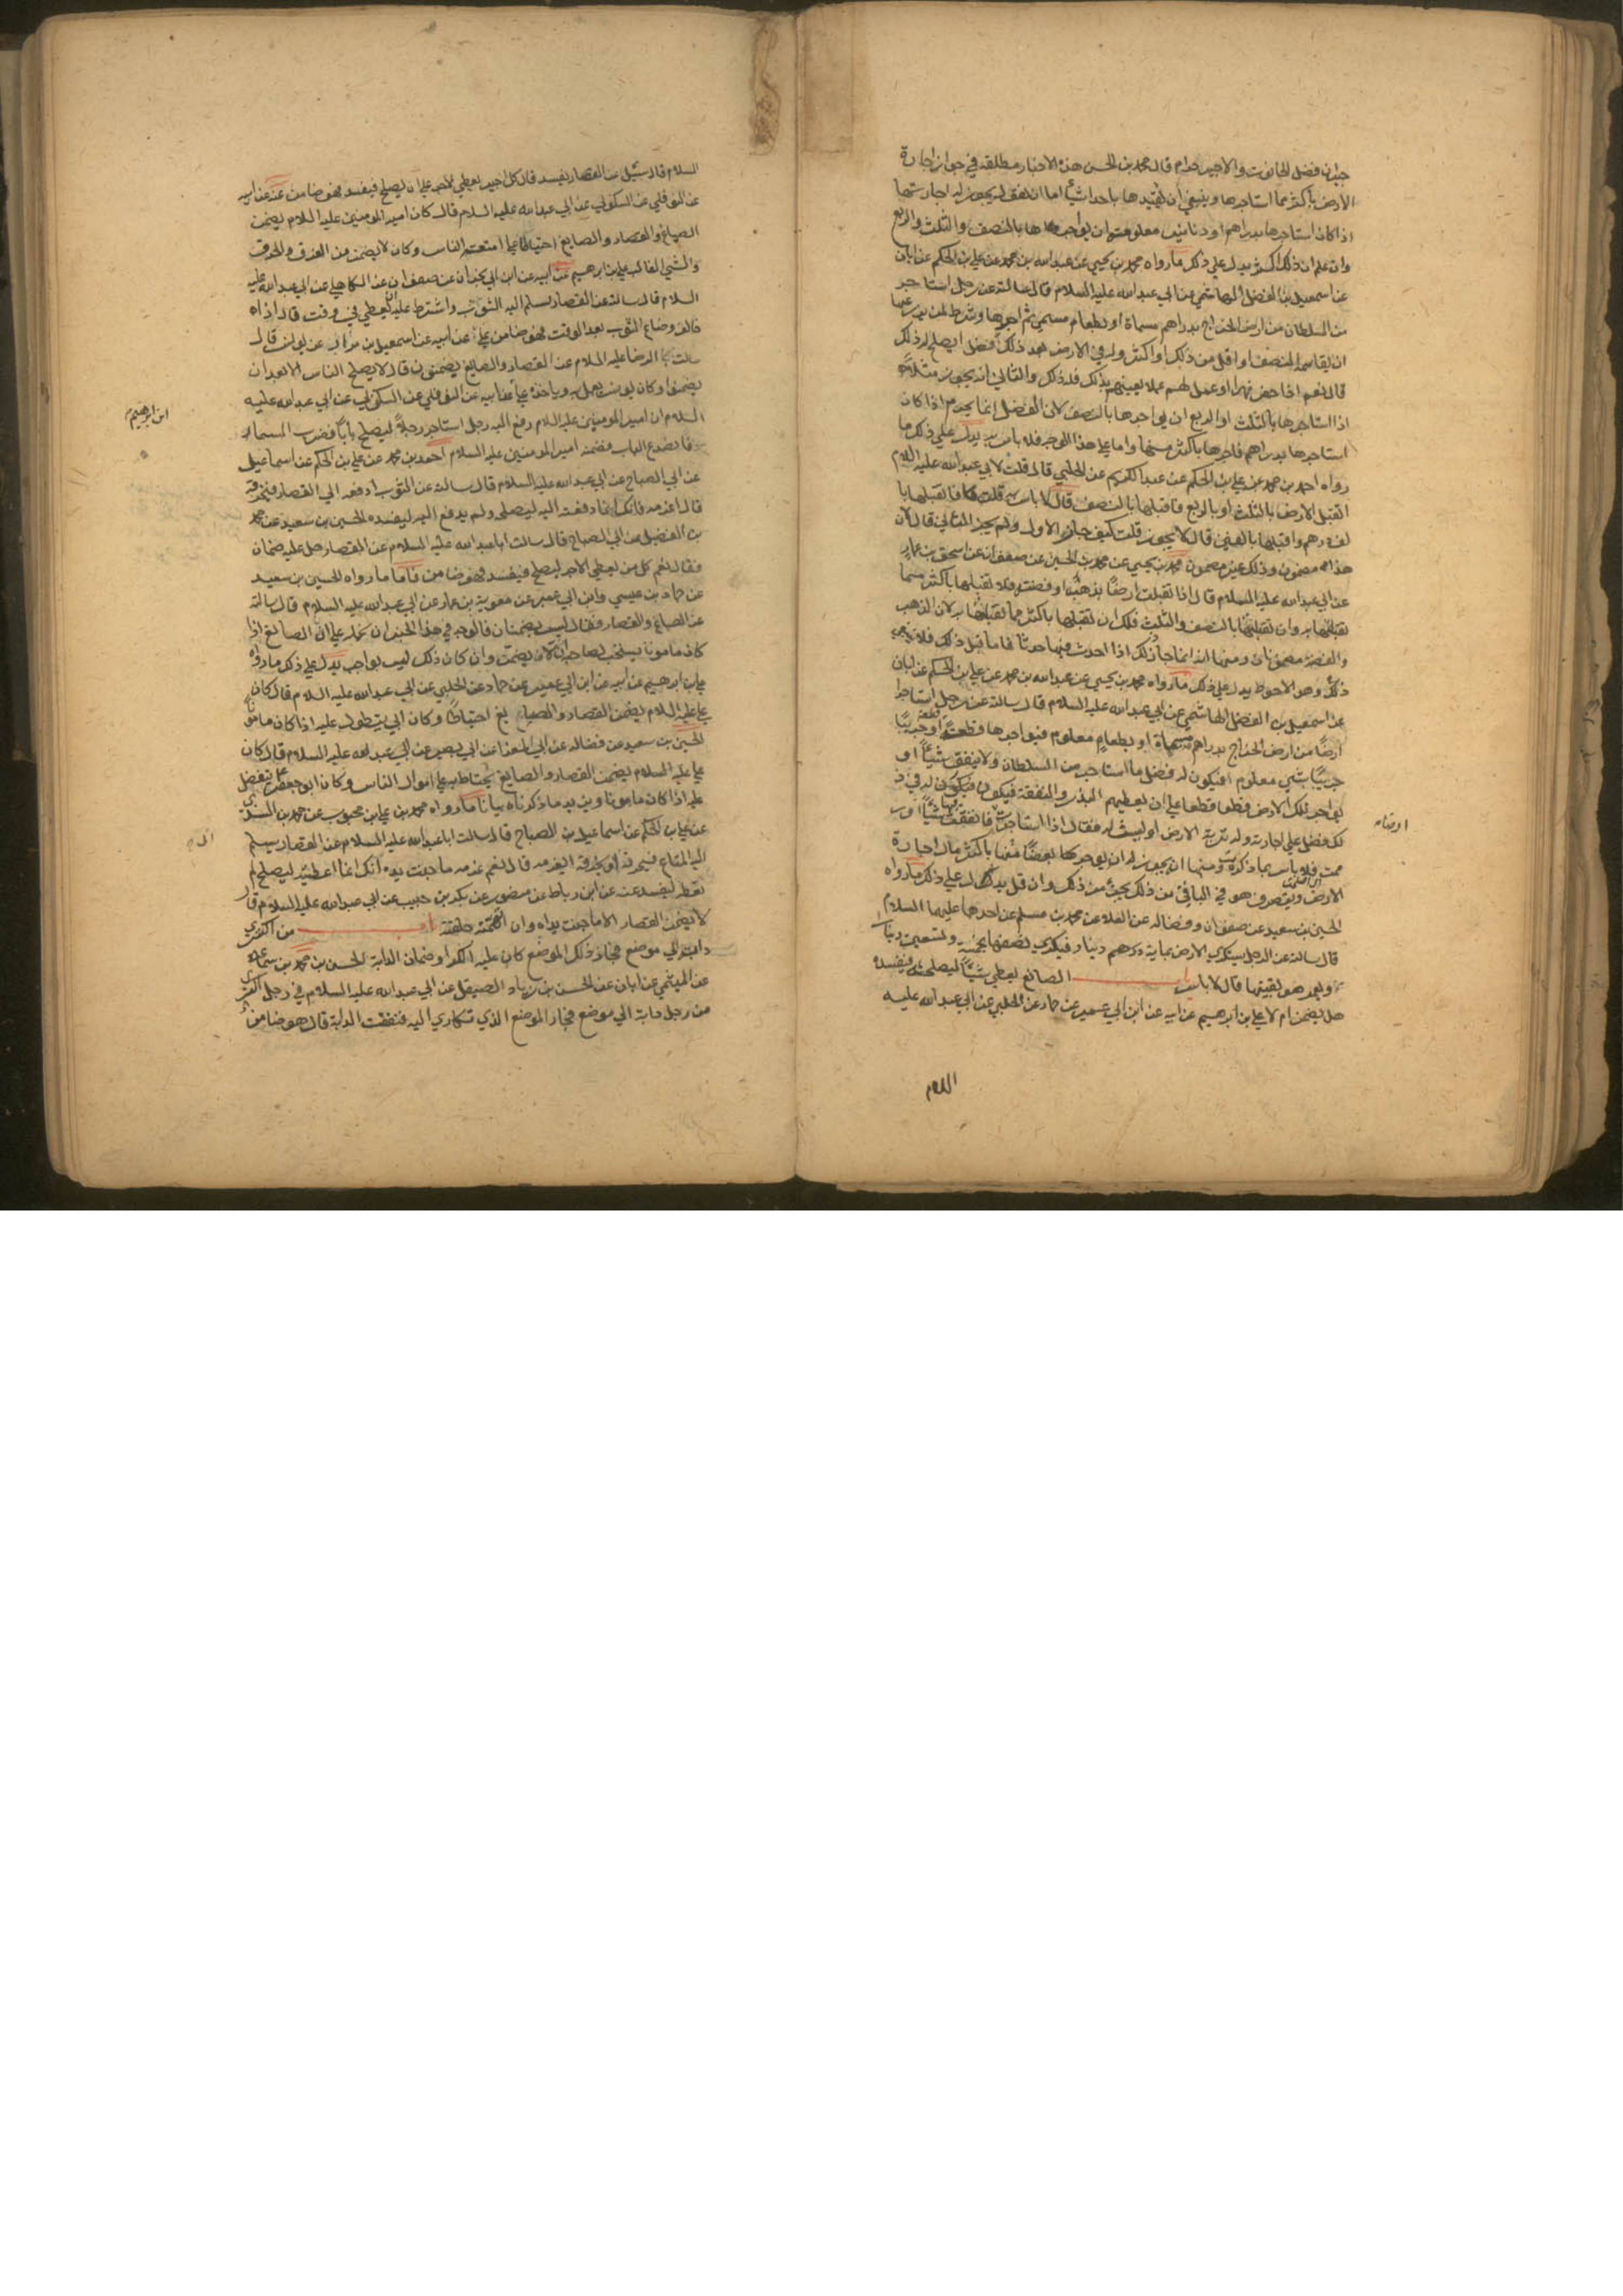 جيران فضل الحانوت والاجير حرام قال محمد بن الحسن هذه الاخبار مطلقة في جواز اجارة
الارض باكثر مما استاجرها وينبغي ان نقيدها باحد اشيأ اما ان نقول يجوز له اجارتها
اذا كان استاجرها بدراهم او دنانير معلومة ان يواجرها بالنصف والثلث والربع
وان علم ان ذلك اكثر يدل على ذلك ما رواه محمد بن يحيي عن عبد الله بن محمد عن علي بن الحكم عن ابان
عن اسمعيل بن الفضل الهاشمي عن ابي عبد الله عليه السلام قال سالته عن رجل استاجر
من السلطان من ارض الخراج بدراهم مسماة او بطعام مسمي ثم اجرها وشرط لمن يزرعها
ان يقاسمه النصف او اقل من ذلك او اكثر وله في الارض بعد ذلك فضل ايصلح له ذلك
قال نعم اذا حفر نهرا او عمل لهم عملا يعينهم بذلك فله ذلك والثاني انه يجوز مثلا
اذا استاجرها بالثلث او الربع ان يواجرها بالنصف لان الفضل انما يحرم اذا كان
استاجرها بدراهم فاجرها باكثر منها واما على هذا الوجه فلا باس به يدل على ذلك ما
رواه احمد بن محمد عن علي بن الحكم عن عبد الكريم عن الحلبي قال قلت لابي عبد الله عليه السلام
اتقبل الارض بالثلث او بالربع فاقبلها بالنصف قال لا باس به قلت فاتقبلها با
لف درهم واقبلها بالفين قال لا يجوز قلت كيف جاز الاول ولم يجز الثاني قال لان
هذا مضمون وذلك غير مضمون محمد بن يحيي عن محمد بن الحسين عن صفوان عن اسحق بن عمار
عن ابي عبد الله عليه السلام قال اذا تقبلت ارضا بذهب او فضة فلا تقبلها باكثر مما
تقبلتها به وان تقبلتها بالنصف والثلث فلك ان تقبلها باكثر مما تقبلتها به لان الذهب
والفضة مضمونان ومنها انه انما جاز ذلك اذا احدث فيها حدثا فاما قبل ذلك فلا يجوز
ذلك وهو الاحوط يدل على ذلك ما رواه محمد بن يحيي عن عبد الله بن محمد عن علي بن الحكم عن ابان
عن اسمعيل بن الفضل الهاشمي عن ابي عبد الله عليه السلام قال سالته عن رجل استاجر
ارضا من ارض الخراج بدراهم مسماة او بطعام معلوم فيواجرها قطعة قطعة او جريبا
جريبا بشي معلوم افيكون له فضل ما استاجر من السلطان ولا ينفق شيئا او
يواجر تلك الارض قطعا قطعا على ان يعطيهم البذر والنفقة فيكون له في ذ
لك فضل على اجارته وله تربة الارض او ليست له فقال اذا استاجرت فانفقت فيها شيئا او ر
ممت فلا باس بما ذكرت ومنها انه يجوز له ان يواجر بعضا منها باكثر مال اجارة
الارض ويتصرف هو في الباقي من ذلك بجزء من ذلك وان قل يدل على ذلك ما رواه
الحسين بن سعيد عن صفوان وفضاله عن العلا عن محمد بن مسلم عن احدهما عليهما السلام
قال سالته عن الرجل يستكري الارض بماية دينار فيكري نصفها بخمسة وتسعين دينارا
ويعمر هو بقيتها قال لا باس الصانع يعطي شيئا ليصلحه فيفسده
هل يضمن ام لا علي بن ابرهيم عن ابيه عن ابن ابي عمير عن حماد عن الحلبي عن ابي عبد الله عليه
السلام
ارضا
السلام قال سئل عن القصار يفسد قال كل اجير يعطي الاجر على ان يصلح فيفسد فهو ضامن عنه عن ابيه
عن النوفلي عن السكوني عن ابي عبد الله عليه السلام قال كان امير المومنين عليه السلام يضمن
الصباغ والقصار والصايغ احتياطا على امتعة الناس وكان لا يضمن من الغرق والحرق
والشي الغالب علي بن ابرهيم عن ابيه عن ابن ابي نجران عن صفوان عن الكاهلي عن ابي عبد الله عليه
السلام قال سالته عن القصار يسلم اليه الثوب واشترط عليه ان يعطي في وقت قال اذا
خالف وضاع الثوب بعد الوقت فهو ضامن علي عن ابيه عن اسمعيل بن مرار عن يونس قال
سالت الرضا عليه السلام عن القصار والصايغ يضمنون قال لا يصلح الناس الا بعد ان
يضمنوا وكان يونس يعمل به وياخذ علي عن ابيه عن النوفلي عن السكوني عن ابي عبد الله عليه
السلام ان امير المومنين عليه السلام رفع اليه رجل استاجر رجلا ليصلح بابا فضرب المسمار
فانصدع الباب فضمنه امير المومنين عليه السلام احمد بن محمد عن علي بن الحكم عن اسماعيل
عن ابي الصباح عن ابي عبد الله عليه السلام قال سالته عن الثوب ادفعه الي القصار فيخرقه
قال اغرمه فانك انما دفعته اليه ليصلحه ولم يدفع اليه ليفسده الحسين بن سعيد عن محمد
بن الفضيل عن ابي الصباح قال سالت ابا عبد الله عليه السلام عن القصار هل عليه ضمان
فقال نعم كل من يعطي الاجر ليصلح فيفسد فهو ضامن فاما ما رواه الحسين بن سعيد
عن حماد بن عيسي وابن ابي عمير عن معوية بن عمار عن ابي عبد الله عليه السلام قال سالته
عن الصباغ والقصار فقال ليس يضمنان فالوجه في هذا الخبر ان نحمله على ان الصانع اذا
كان مامونا يستحب لصاحبه ان لا يضمنه وان كان ذلك ليس بواجب يدل على ذلك ما رواه
علي بن ابرهيم عن ابيه عن ابن ابي عمير عن حماد عن الحلبي عن ابي عبد الله عليه السلام قال كان
علي عليه السلام يضمن القصار والصباغ احتياطا وكان ابي يتطول عليه اذا كان مامونا
الحسين بن سعيد عن فضاله عن ابي المغرا عن ابي بصير عن ابي عبد الله عليه السلام قال كان
علي عليه السلام يضمن القصار والصايغ يحتاط به على اموال الناس وكان ابو جعفر يتفضل
عليه اذا كان مامونا ويزيد ما ذكرناه بيانا ما رواه محمد بن علي بن محبوب عن محمد بن السندي
عن علي بن الحكم عن اسماعيل بن الصباح قال سالت ابا عبد الله عليه السلام عن القصار يسلم
اليه المتاع فيحرقه او يخرقه ايغرمه قال نعم غرمه ما جنت يده انك انما اعطيته ليصلح لم
تعط ليفسد عنه عن ابن رباط عن منصور عن بكر بن حبيب عن ابي عبد الله عليه السلام قال
لا يضمن القصار الا ما جنت يداه وان اتهمته حلفته من اكتري
دابة الي موضع فجاز ذلك الموضع كان عليه الكرا وضمان الدابة الحسن بن محمد بن سماعة
عن الميثمي عن ابان عن الحسن بن زياد الصيقل عن ابي عبد الله عليه السلام في رجل اكتري
من رجل دابة الي موضع فجاز الموضع الذي تكاري اليه فنفقت الدابة قال هو ضامن
ابن ابرهيم